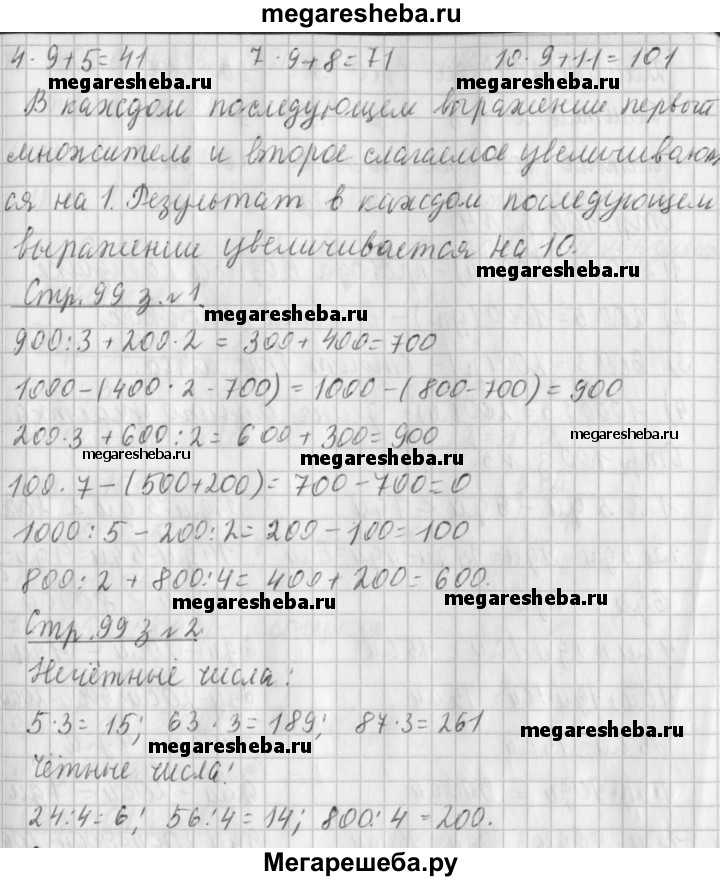 megaresheba.ru
4·9+5=41 7·9+8=71 10·9+11=101
megaresheba.ru megaresheba.ru
В каждом последующем выражении первый
множитель и второе слагаемое увеличивают
ся на 1. Результат в каждом последующем
выражении увеличивается на 10.
megaresheba.ru
Стр. 99 з. №1.
megaresheba.ru
900:3+200·2=300+400=700
1000-(400·2-700)=1000-(800-700)=900
200·3+600:2=600+300=900
megaresheba.ru
megaresheba.ru megaresheba.ru
100·7-(500+200)=700-700=0
1000:5-200:2=200-100=100
800:2+800:4=400+200=600.
megaresheba.ru megaresheba.ru
Стр. 99 з №2.
Нечётные числа:
5·3=15; 63·3=189; 87·3=261
megaresheba.ru
megaresheba.ru
Чётные числа:
24:4=6; 56:4=14; 800:4=200.
Мегарешеба.ру